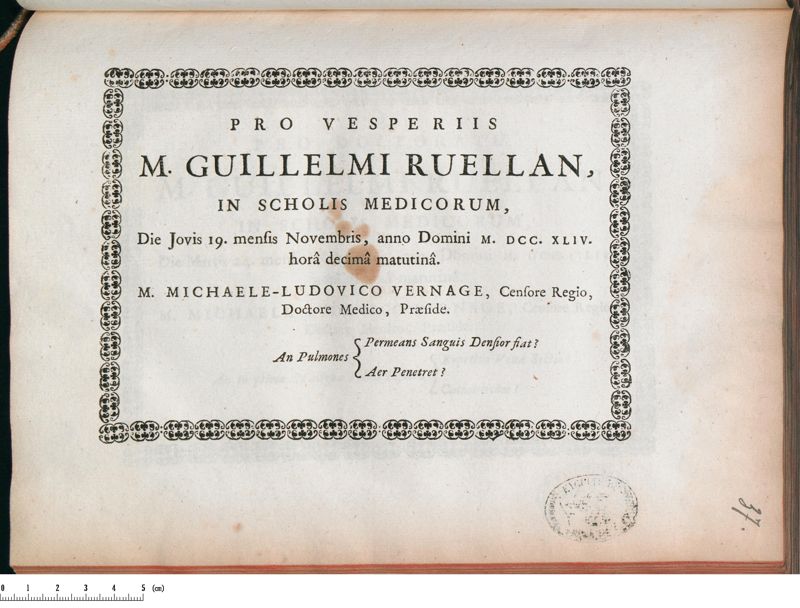 PRO VESPERIIS
M. GUILLELMI RUELLAN,
IN SCHOLIS MEDICORUM,
Die Jovis 19. mensis Novembris, anno Domini M. DCC. XLIV.
horâ decimâ matutinâ.
M. MICHAELE-LUDOVICO VERNAGE, Censore Regio,
Doctore Medico, Præside.
An Pulmones { Permeans Sanguis Densior fiat?
Aer Penetret?
37.
0 1 2 3 4 5 (cm)